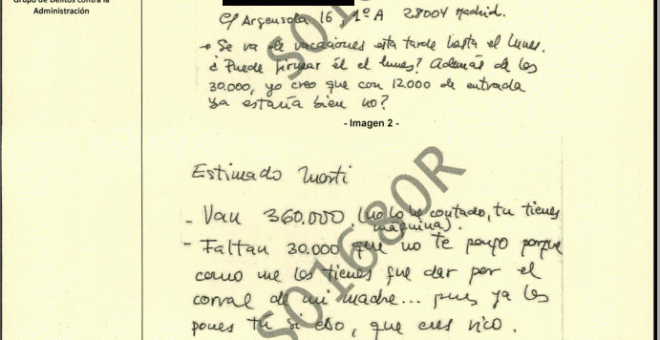 Grupo de Delitos contra la
Administración
C/ Argensola 16, 1º A 28004 Madrid.
→ Se va de vacaciones esta tarde hasta el lunes.
¿Puede firmar él el lunes? Además de los
30.000, yo creo que con 12.000 de entrada
ya estaría bien no?
- Imagen 2 -
Estimado Morti
- Van 360.000 (no lo he contado, tu tienes
máquina).
- Faltan 30.000 que no te pongo porque
como me los tienes que dar por el
corral de mi madre... pues ya los
pones tu si eso, que eres rico.
SO1680R
SO1680R